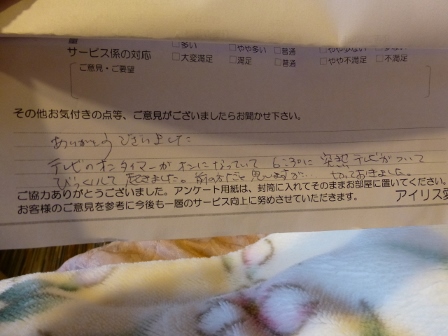 量
□多い □やや多い □普通 □やや少ない
サービス係の対応 □大変満足 □満足 □普通 □やや不満足 □不満足
ご意見・ご要望
その他お気付きの点等、ご意見がございましたらお聞かせ下さい。
ありがとうございました
テレビのオンタイマーがオンになっていて 6:30に突然テレビがついて
びっくりして起きました。前の方だと思いますが… 切っておきました。
ご協力ありがとうございました。アンケート用紙は、封筒に入れてそのままお部屋に置いてください。
お客様のご意見を参考に今後も一層のサービス向上に努めさせていただきます。 アイリス愛